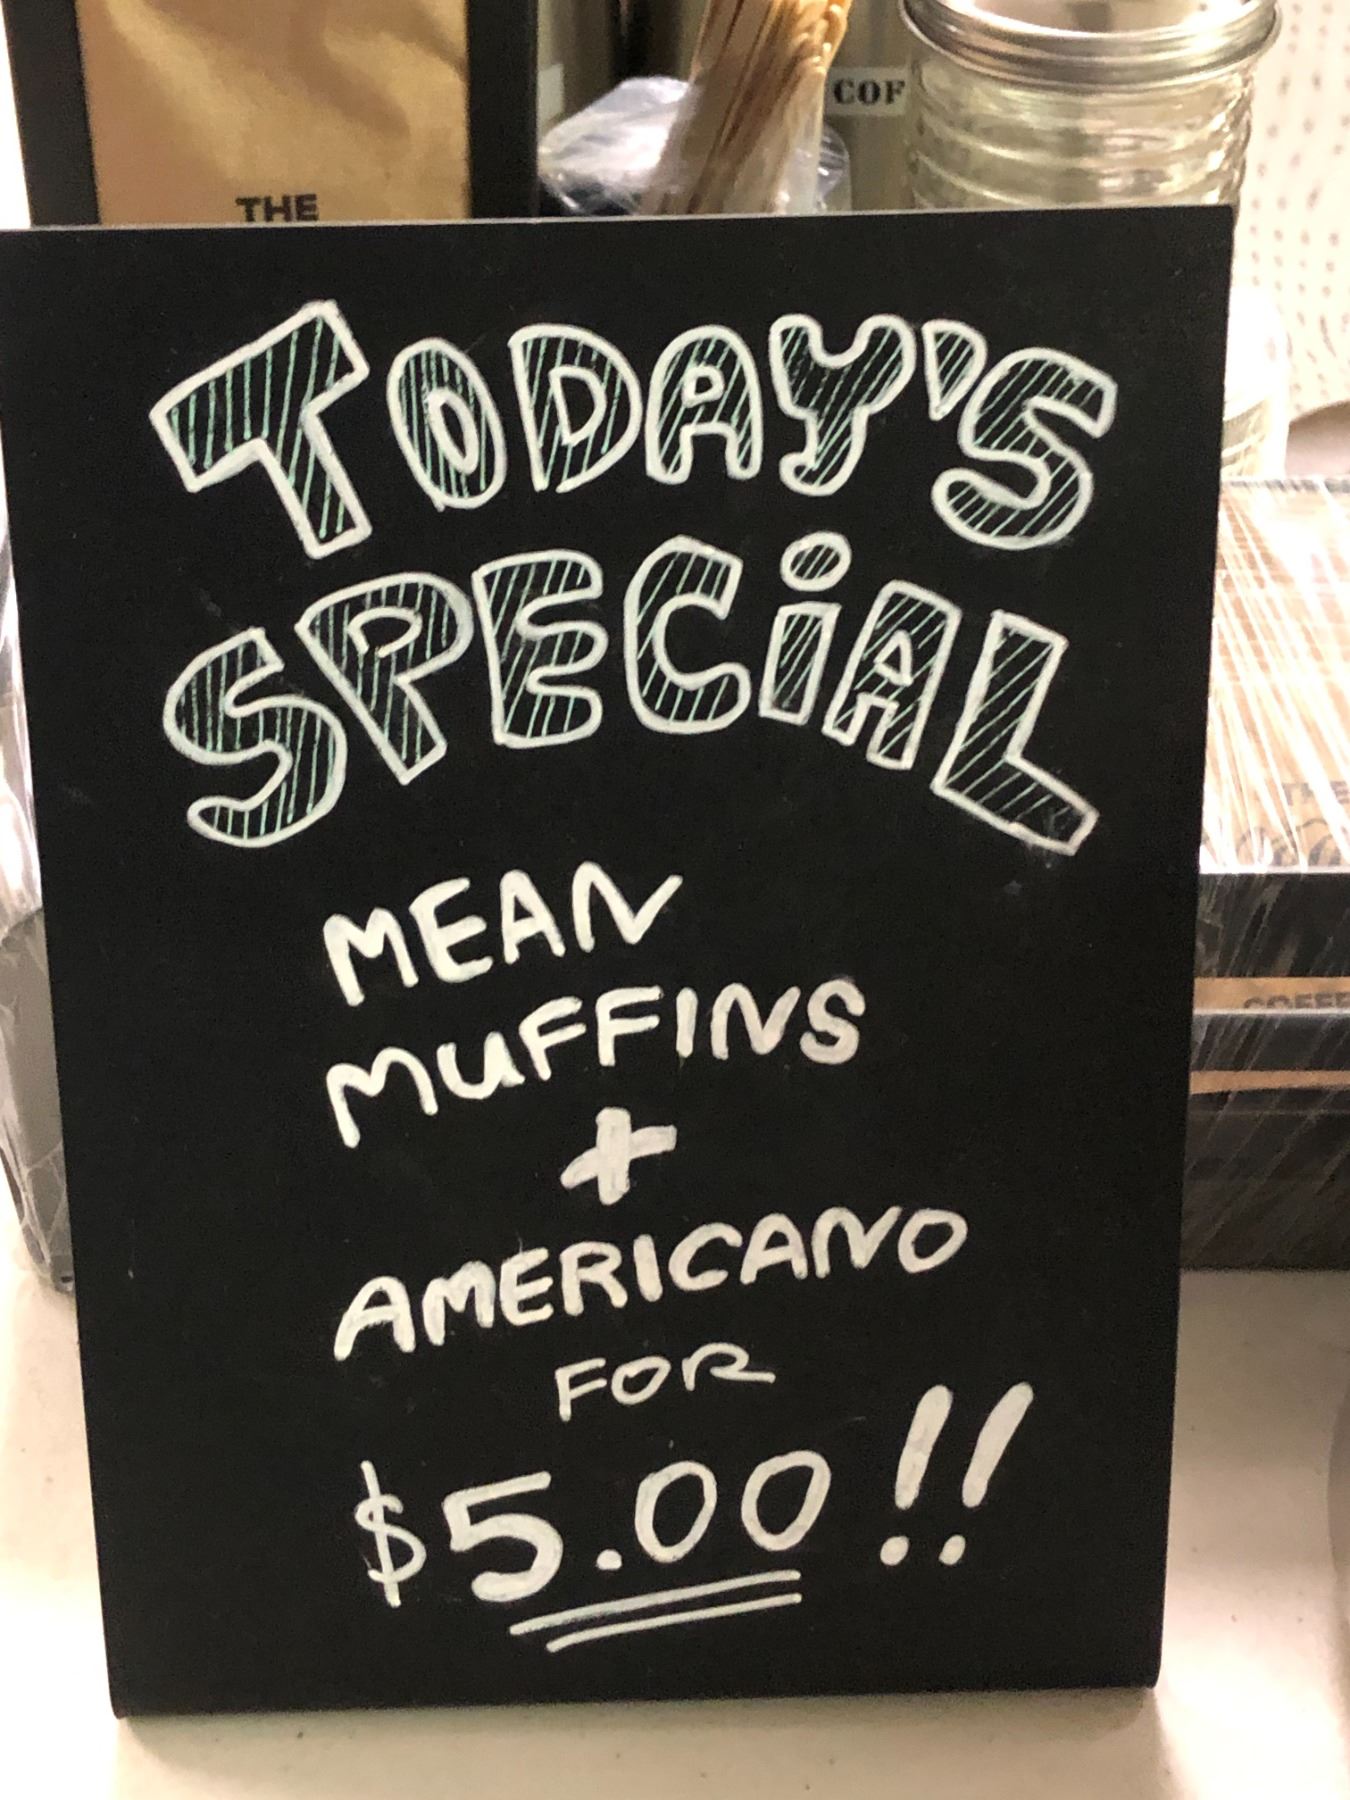 THE
COF
TODAY'S
SPECiAL
MEAN
MUFFINS
+
AMERICANO
FOR
$5.00!!